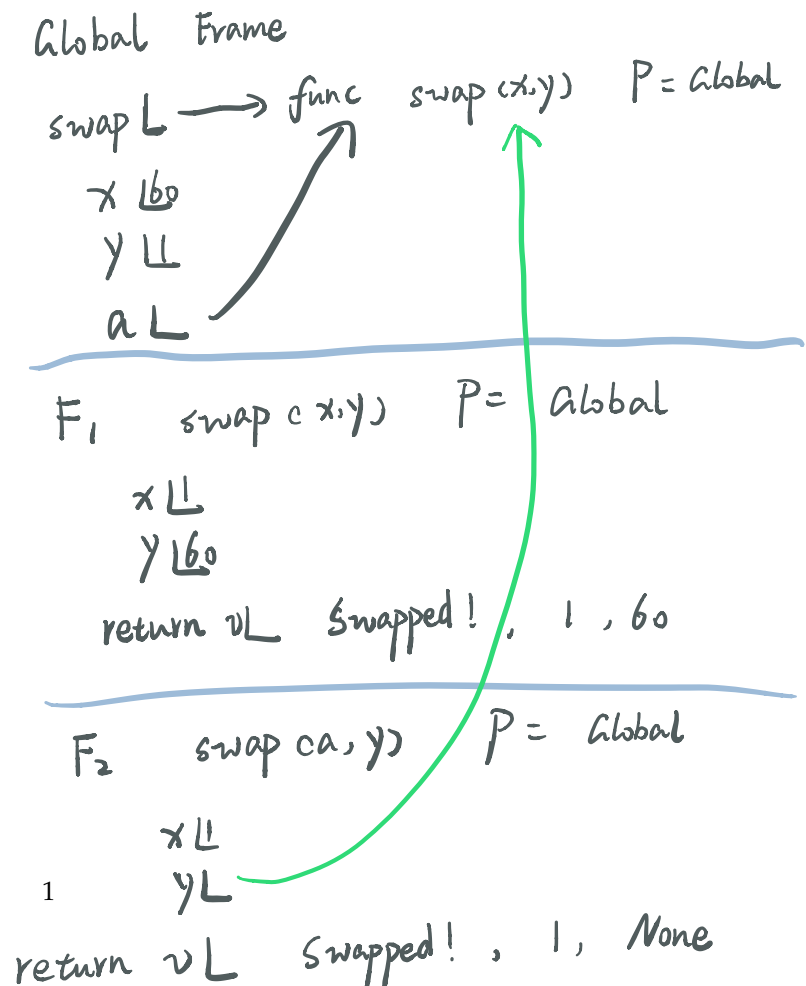 Global Frame
swap func swap (x,y) P = Global
x 60
y 1
a
F1 swap (x,y) P = Global
x 1
y 60
return v Swapped! , 1 , 60
F2 swap (a, y) P = Global
x 1
1 y
return v Swapped! , 1, None